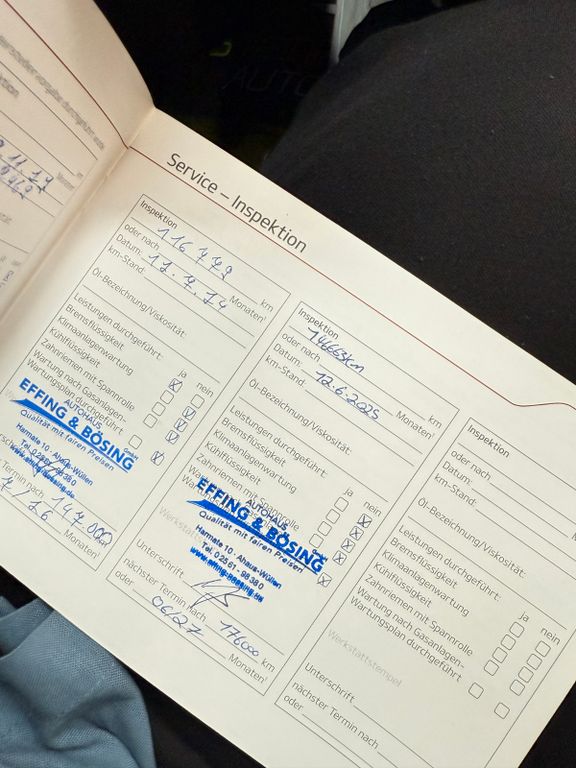 Service – Inspektion
Inspektion
116 779 km
oder nach
Monaten!
Datum:
km-Stand:
Öl-Bezeichnung/Viskosität:
Leistungen durchgeführt:
ja nein
Bremsflüssigkeit
Klimaanlagenwartung
Kühlflüssigkeit
Zahnriemen mit Spannrolle
Wartung nach Gasanlagen-
Wartungsplan durchgeführt
AUTOHAUS
EFFING & BÖSING GmbH
Qualität mit fairen Preisen
Harmate 10 · Ahaus-Wüllen
Tel. 02561 - 98380
www.effing-boesing.de
Termin nach 147.000
Monaten!
Inspektion
146663km km
oder nach
Monaten!
Datum: 12.6.2025
km-Stand:
Öl-Bezeichnung/Viskosität:
Leistungen durchgeführt:
ja nein
Bremsflüssigkeit
Klimaanlagenwartung
Kühlflüssigkeit
Zahnriemen mit Spannrolle
AUTOHAUS
EFFING & BÖSING GmbH
Qualität mit fairen Preisen
Harmate 10 · Ahaus-Wüllen
Tel. 02561 - 98380
www.effing-boesing.de
Unterschrift
nächster Termin nach 176000 km
oder 06.27 Monaten!
Inspektion
oder nach
Datum:
km-Stand:
Öl-Bezeichnung/Viskosität:
Leistungen durchgeführt:
ja nein
Bremsflüssigkeit
Klimaanlagenwartung
Kühlflüssigkeit
Zahnriemen mit Spannrolle
Wartung nach Gasanlagen-
Wartungsplan durchgeführt
Werkstattstempel
Unterschrift
nächster Termin nach
oder